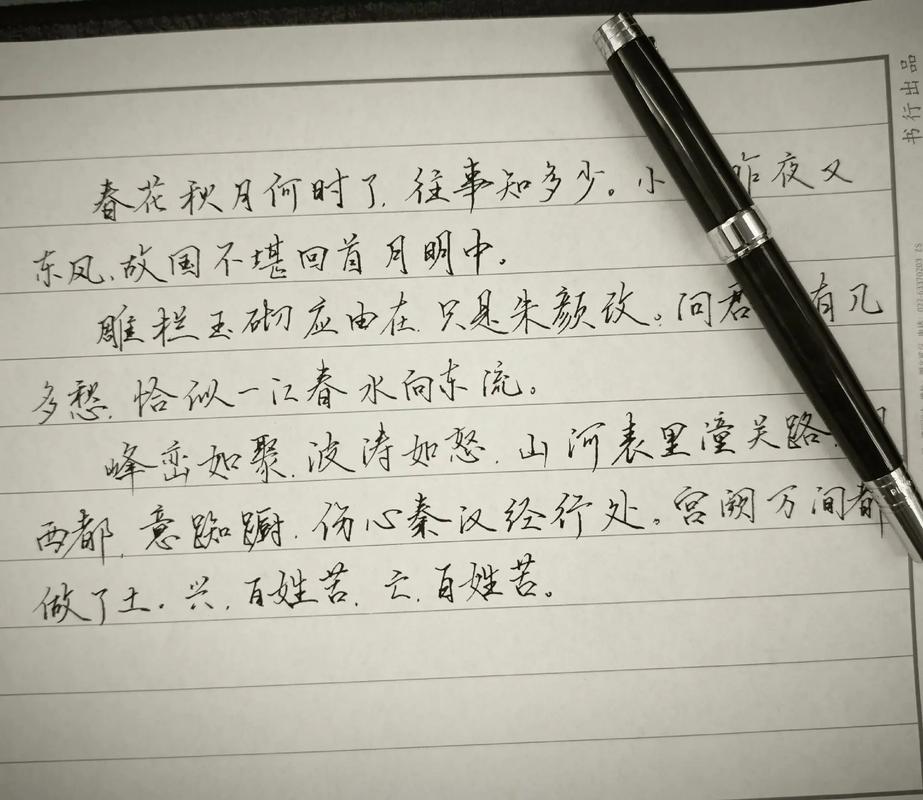 春花秋月何时了,往事知多少。小 昨夜又
东风,故国不堪回首月明中。
雕栏玉砌应由在,只是朱颜改。问君 有几
多愁,恰似一江春水向东流。
峰峦如聚,波涛如怒,山河表里潼关路,
西都,意踟蹰,伤心秦汉经行处。宫阙万间都
做了土。兴,百姓苦,亡,百姓苦。
书行出品